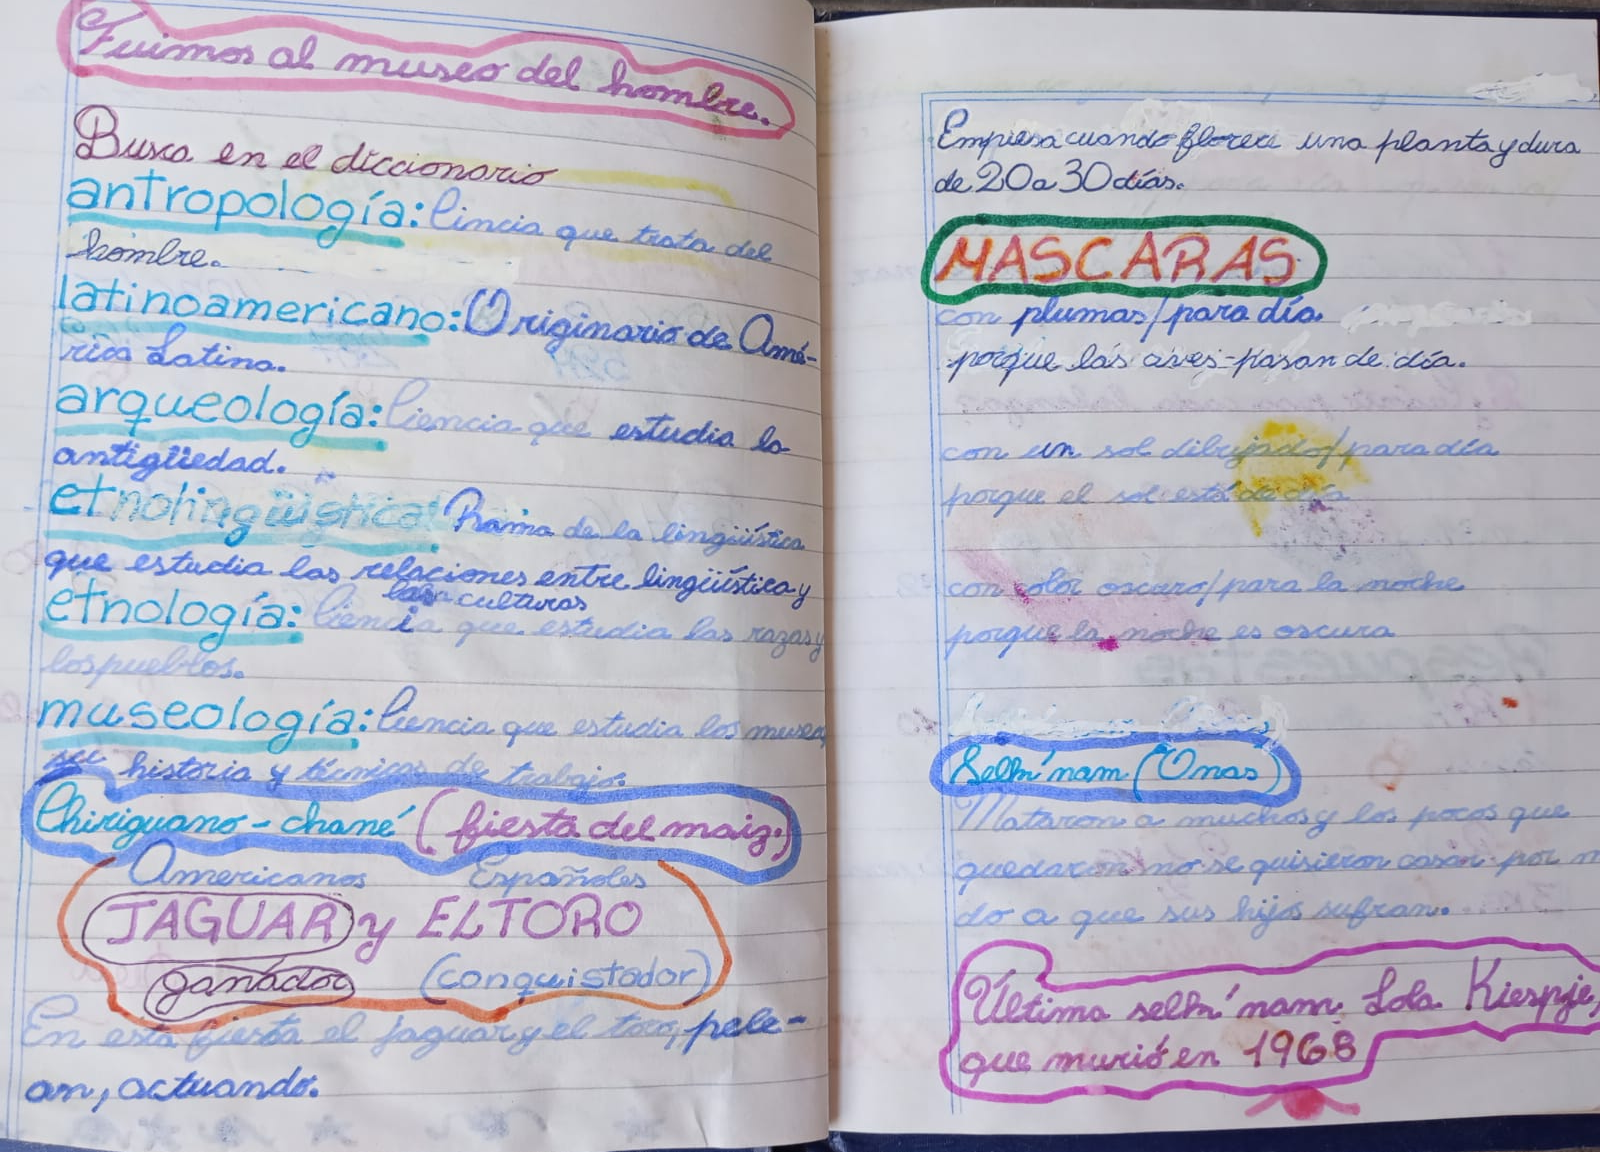 Fuimos al museo del hombre.
Busca en el diccionario
antropología: Cincia que trata del
hombre.
latinoamericano: Originario de Amé-
rica Latina.
arqueología: Ciencia que estudia la
antigüedad.
etnolingüística: Rama de la lingüística
que estudia las relaciones entre lingüística y
las culturas
etnología: Ciencia que estudia las razas y
los pueblos.
museología: Ciencia que estudia los museos,
su historia y técnicas de trabajo.
Chiriguano-chané (fiesta del maiz.)
Americanos Españoles
JAGUAR y EL TORO
ganador (conquistador)
En esta fiesta el jaguar y el toro, pele-
an, actuando.
Empiesa cuando florece una planta y dura
de 20 a 30 días.
MASCARAS
con plumas/para día.
porque las aves pasan de día.
con un sol dibujado/para día
porque el sol está de día
con color oscuro/para la noche
porque la noche es oscura
Selk'nam (Onas)
Mataron a muchos y los pocos que
quedaron no se quisieron casar por m
do a que sus hijos sufran.
Última selk'nam Lola Kiespje,
que murió en 1968